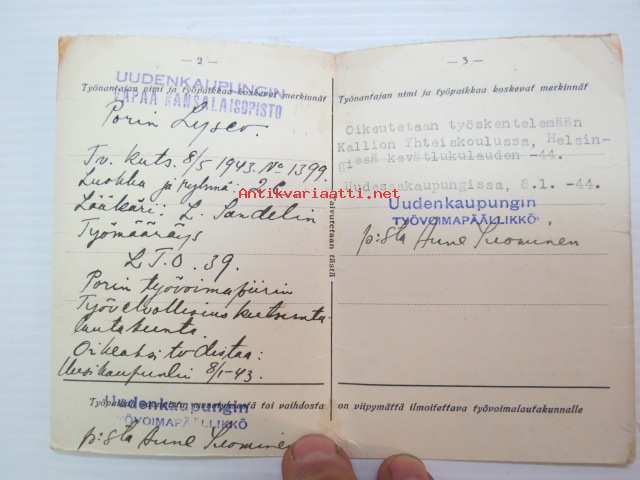 — 2 —
UUDENKAUPUNGIN
VAPAA KANSALAISOPISTO
Työnantajan nimi ja työpaikkaa koskevat merkinnät
Porin Lyseo.
Tv. kuts. 8/5 1943. No 1399.
Luokka ja ryhmä: 2
Lääkäri: L. Sandelin
Työmääräys
L.T.O. 39.
Porin työvoimapiirin
Työvelvollisuuskutsunta-
lautakunta
Oikeaksi todistaa:
Uusikaupunki 8/1-43.
Työpaikan tai vaihdosta
Uudenkaupungin
TYÖVOIMAPÄÄLLIKKÖ
p:sta Anne Suominen
taivutetaan tästä
— 3 —
Työnantajan nimi ja työpaikkaa koskevat merkinnät
Oikeutetaan työskentelemään
Kallion Yhteiskoulussa, Helsin-
gissä kevätlukukauden -44.
Uudessakaupungissa, 8.1. -44.
Uudenkaupungin
TYÖVOIMAPÄÄLLIKKÖ
p:sta Anne Suominen
on viipymättä ilmoitettava työvoimalautakunnalle
Antikvariaatti.net